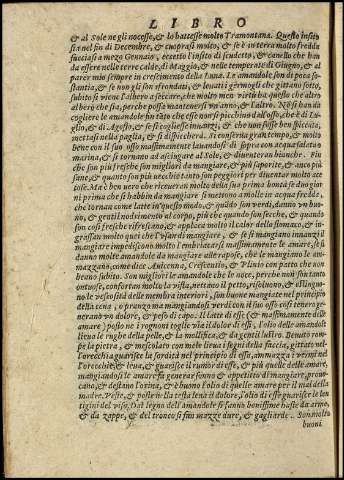 LIBRO
& al Sole ne gli nocesse, & lo battesse molto Tramontana. Questo insito
sia nel fin di Decembre, & cuoprasi molto, & se è in terra molto fredda
facciasi a mezo Gennaio, eccetto l'insito di scudetto, & canello che han
da essere nelle terre calde, di Maggio, & nelle temperate di Giugno, & al
parer mio sempre in crescimento della Luna. Le amandole son di poca so-
stantia, & se non gli son sfrondati, & levati i germogli che gittano sotto,
subito si viene l'albero a seccare, ha molto men virtù ha questo che altro
albero che sia, perche possa mantenersi un'anno, & l'altro. Nõ si han da
cogliere le amandole fin tãto che esse non si picchino dall'osso, che è di Lu-
glio, & di Agosto, & se si coglie innanzi, & che non fosse ben spiccata,
mettasi nella paglia, & si dispiccherà. Si conserva gran tempo, & molto
bene con il suo osso massimamente lavandosi di sopra con acqua salata o
marina, & si tornano ad asciugare al Sole, & diventeran bianche. Fin
che son più fresche son migliori da mangiare, & più saporite, & anco più
sane, & quanto son più vecchie tanto son peggiori per diventar molto ac-
tose. Ma è ben vero che ricuperan molto della sua prima bontà se due gior
ni prima che si habbin da mangiare si mettono a molle in acqua fredda,
che tornan come latte in questo modo, & quãdo son verdi, danno un buo-
no, & gentil nodrimento al corpo, più che quando son secche, & quando
son così fresche rifrescano, & applaca molto il calor dello stomaco, & in-
grassano molto quei che l'usan di mangiare, & se si mangiano innanzi il
mangiare impediscono molto l'embriacarsi massimamente le amare, se si
danno molte amandole da mangiare alle rapose, che le mangino le am-
mazzano, come dice, Avicenna, Crescentio, & Plinio con patto che non
brano subito. Son migliori le amandole che le noce, perche non son tanto
ontuose, confortan molto la vista, nettano il petto, risolvono, & assottiglia-
no le viscosità delle membra interiori, son buone mangiate nel principio
della cena, o pranzo ma mangiandosi verdi con il suo osso così tenero ge-
neranno un dolore, & peso di capo. Il latte di esse (& massimamente delle
amare) posto ne i rognoni toglie via il dolor di essi, l'olio delle amandole
lieva le rughe della pelle, & la mollifica, & da gentil lustro. Bevuto rom-
pe la pietra, & mescolato con mele lieva i segni della faccia, gittato nel-
l'orecchia guarisce la sordità nel principio di essa, ammazza i vermi nel-
l'orecchie, & leva, & guarisce il rumor di esse, & più quelle delle amare,
mangiandosi le amare fa generar sonno & appetito di mangiare, provo-
cano, & destano l'orina, & è buono l'olio di quelle amare per il mal della
madre. Peste, & poste in la testa leva il dolore, l'olio di esse guarisce le len
tigini del viso. Dal legno dell'amandole si fanno bonissime haste da arme,
& da zappe, & del tronco si fan mazze dure, & gagliarde. Son molto
buoni